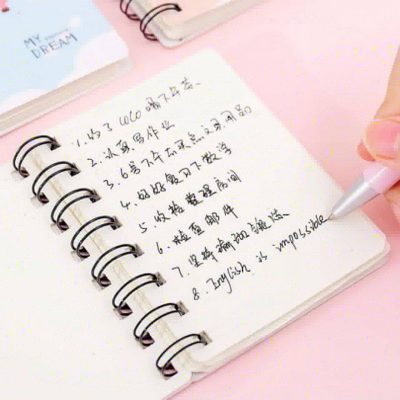 MY
DREAM
1. 约了COCO喝下午茶、
2. 认真写作业
3. 6号下午去买点文具用品
4. 好好复习下数学
5. 收拾整理房间
6. 检查邮件
7. 坚持瑜珈
8. English is impossible